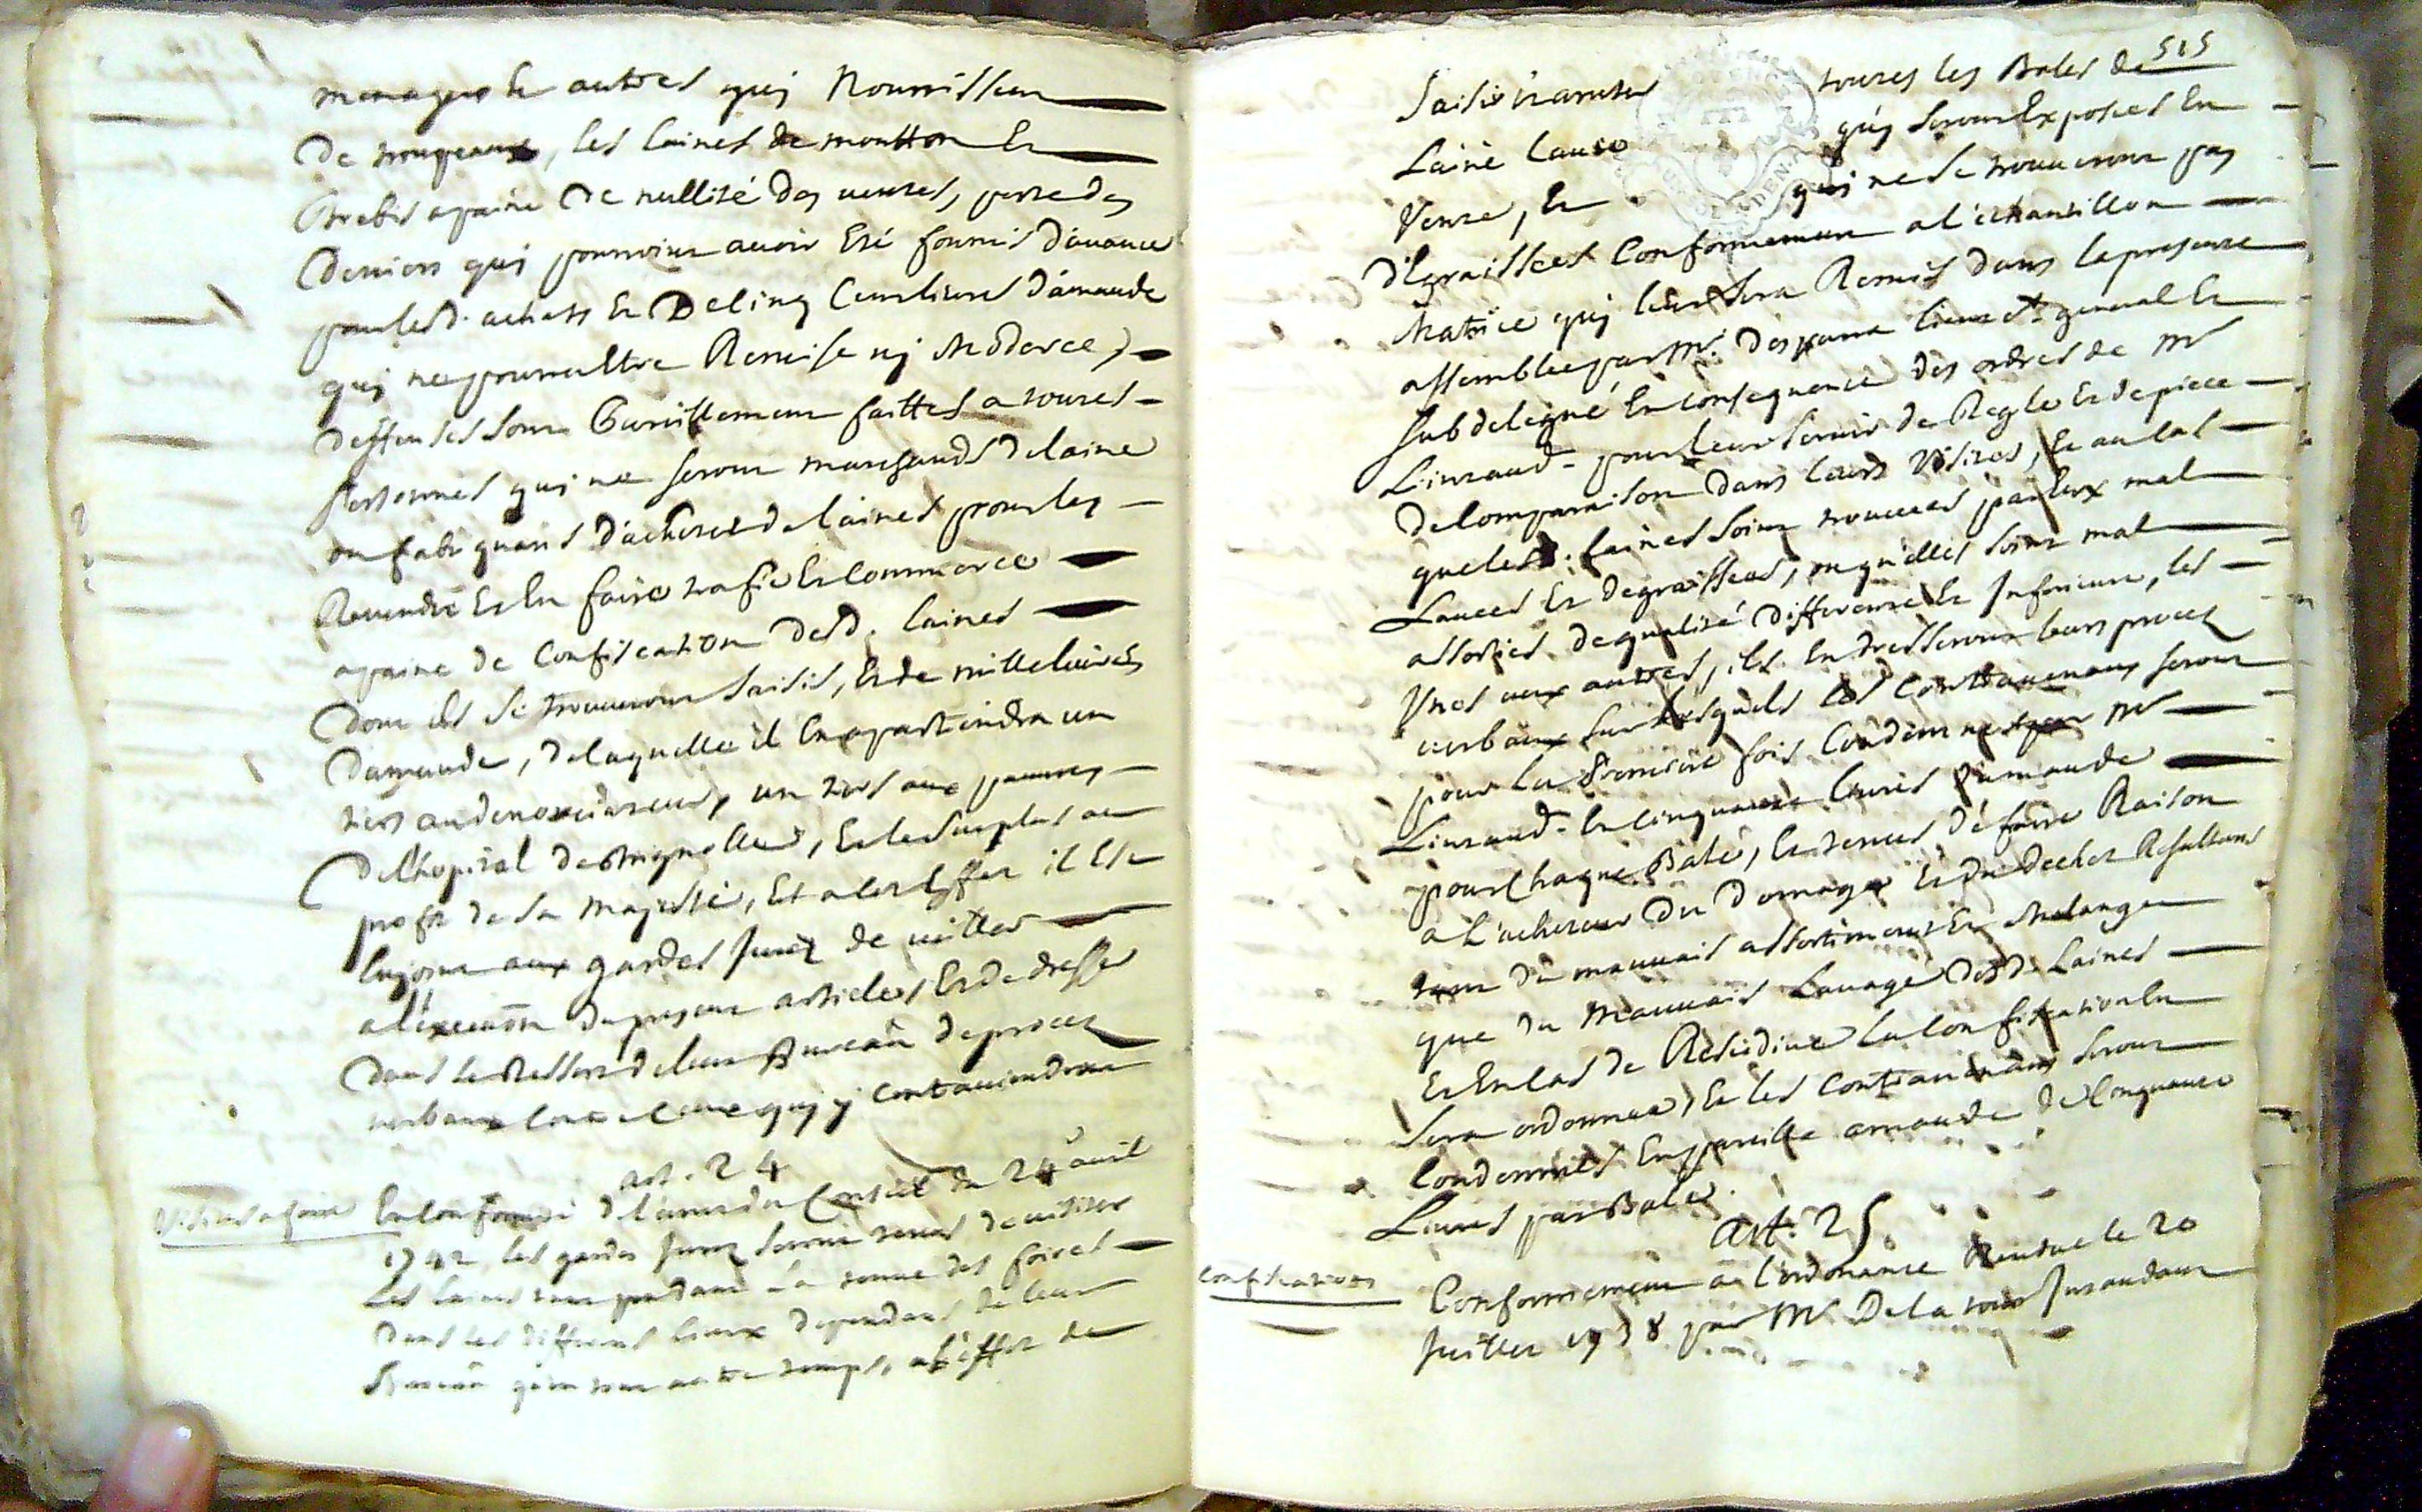 menagers Et autres quj Nourrissent
De troupeaux, les laines de moutton Et
Brebis apaine De nullité des ventes, perte des
Deniers quj pourroint avoir Eté fournis d'avance
pour lesd. achats Et De Cinq Cens livres d'amande
quj ne pourra Etre Remise nj Moderée,
Deffenses sont Pareillement faittes a toutes
Personnes quj ne seront marchands De laine
ou fabriquans d'acheter de laines pour les
Revendre Et En faire trafic Et Commerce
apaine de Confiscation Desd. laines
Dont ils se trouveront saisis, Et de mille livres
Damande, De laquelle il En apartiendra un
tiers au denonciateur, un tiers aux pauvres
De l'hopital de , Et le surplus au
profit de Sa Majesté, Et a cet Effet il Est
Enjoint aux gardes Jurez de veiller
a l'execution du present article, Et de dresser
Dans le Ressort de leur Bureau de procez
verbaux contre ceux quj y contraviendront
art. 24
Visites a faire
En conformité de l'arret du Conseil du 24 avril
1742 les gardes Jurez seront tenus de visiter
Les laines tant pendant la tenue des foires
Dans les differens lieux dependans de leur
Bureau qu'en tout autre temps, a l'effet de
515
saisir Et arreter toutes les Bales de
Laine lavée quj seront Exposées En
Vente, Et quj ne se trouveront pas
d'Egraissées Conformement a l'echantillon
Matrice quj leur sera Remis dans la presente
assemblée par Mr. lieut.t general Et
subdelegué En consequence des ordres de Mr
L'intend.t pour leur servir de Regle Et de piece
De Comparaison Dans leurs Visites, Et au cas
que lesd. laines soint trouvées par Eux mal
Lavées Et degraissées, ou qu'elles soint mal
assorties de qualité differente Et Inferieure, les
Unes aux autres, ils En dresseront leurs procez
verbaux sur lesquels les Contravenans seront
pour la Premiere fois Condamnés par Mr
L'intend.t En cinquante livres d'amande
pour Chaque Bale, Et tenus de faire Raison
a l'acheteur Du Domage Et Du dechet Resultant
tant du mauvais assortiment Et Melange
que du Mauvais Lavage Desd. Laines
Et En cas de Recidive la Confiscation En
Sera ordonnée, Et les Contravenans seront
Condamnés En pareille amande de Cinquante
Livres par Bale.
art. 25
Confiscations
Conformement a l'ordonance Rendue le 20
Juillet 1738 par Mr. De la tour Intendant